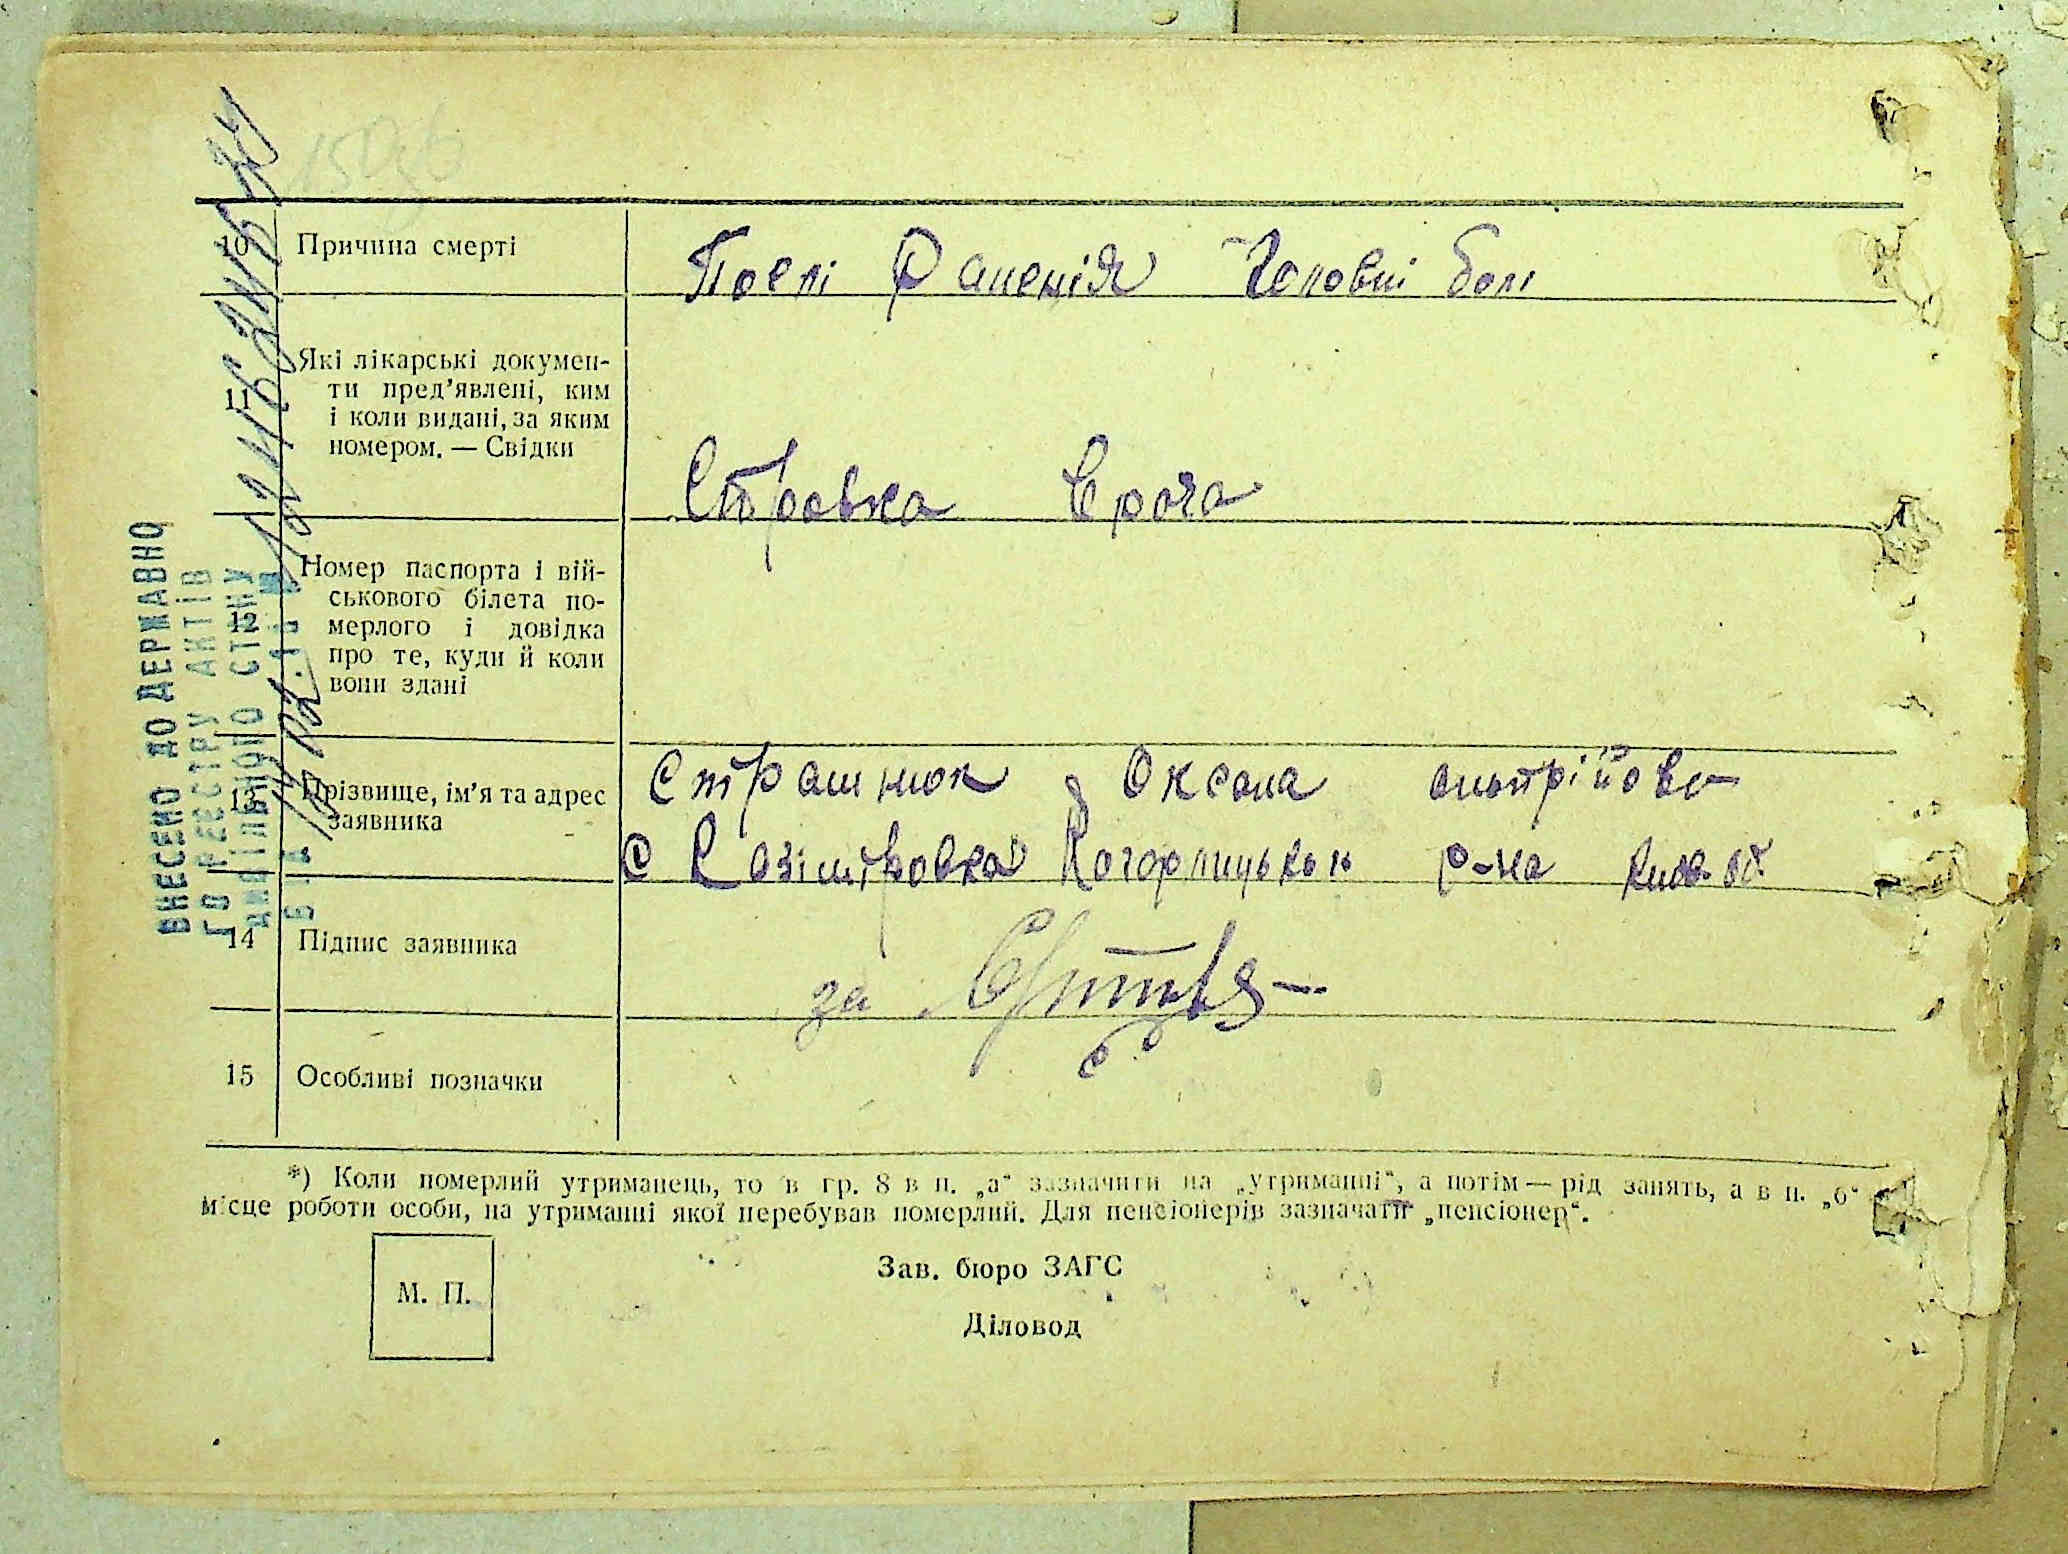 10 Причина смерті
Послі Раненія Головні болі
11 Які лікарські докумен-
ти пред’явлені, ким
і коли видані, за яким
номером. — Свідки
Справка врача
12 Номер паспорта і вій-
ськового білета по-
мерлого і довідка
про те, куди й коли
вони здані
13 Прізвище, ім’я та адрес
заявника
Страшнюк Оксана
с Казіміровка Кагорлицького р-на Київ. об.
14 Підпис заявника
за
15 Особливі позначки
*) Коли померлий утриманець, то в гр. 8 в п. „а“ зазначити на „утриманні“, а потім — рід занять, а в п. „б“
місце роботи особи, на утриманні якої перебував померлий. Для пенсіонерів зазначати „пенсіонер“.
М. П.
Зав. бюро ЗАГС
Діловод
ВНЕСЕНО ДО ДЕРЖАВНО
ГО РЕЄСТРУ АКТІВ
ЦИВІЛЬНОГО СТАНУ